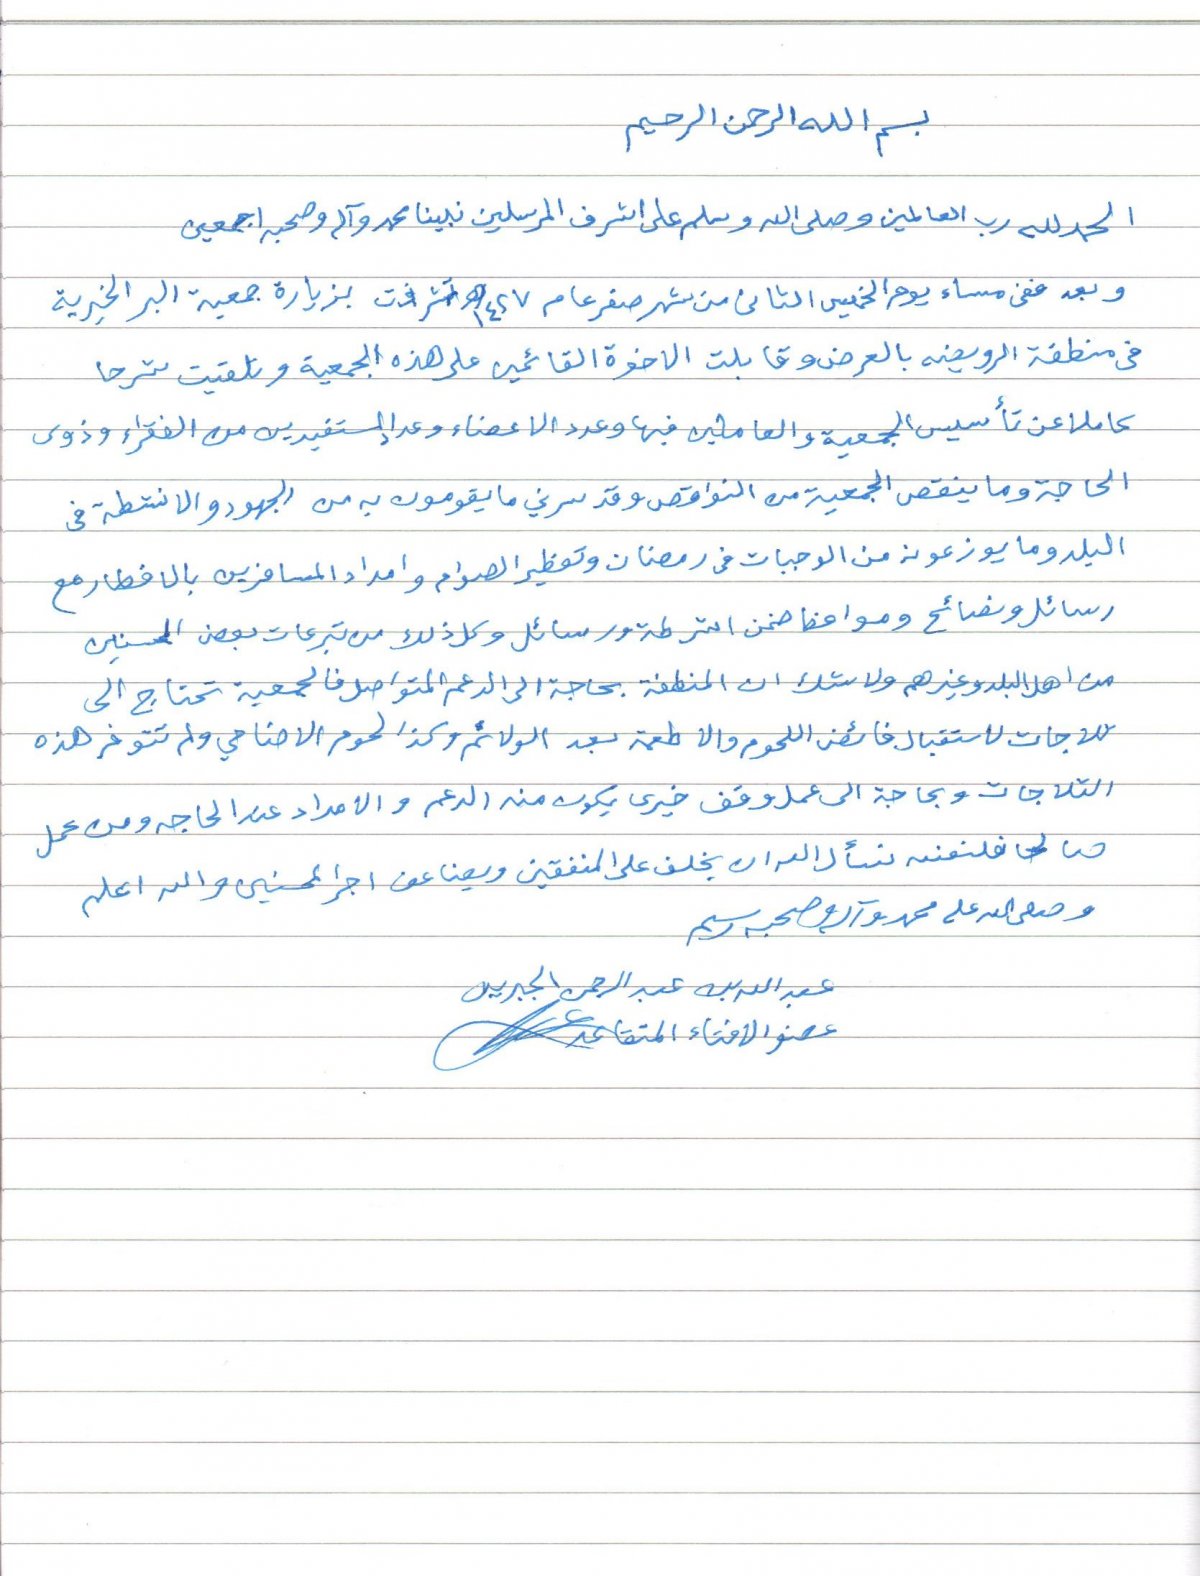 بسم الله الرحمن الرحيم
الحمد لله رب العالمين وصلى الله وسلم على اشرف المرسلين نبينا محمد وآله وصحبه اجمعين
وبعد ففى مساء يوم الخميس الثانى من شهر صفر عام ١٤٢٧هـ تشرفت بزيارة جمعية البر الخيرية
فى منطقة الرويضه بالعرض وقابلت الاخوة القائمين على هذه الجمعية وتلقيت شرحا
كاملا عن تأسيس الجمعية والعاملين فيها وعدد الاعضاء وعدد المستفيدين من الفقراء وذوى
الحاجة وما ينقص الجمعية من النواقص وقد سرني ما يقومون به من الجهود والانشطة فى
البلد وما يوزعونه من الوجبات فى رمضان وتفطير الصوام وامداد المسافرين بالافطار مع
رسائل ونصائح ومواعظ ضمن اشرطة ورسائل وكل ذلك من تبرعات بعض المحسنين
من اهل البلد وغيرهم ولاشك ان المنطقة بحاجة الى الدعم المتواصل فالجمعية تحتاج الى
ثلاجات لاستقبال فائض اللحوم والاطعمة بعد الولائم وكذا لحوم الاضاحي ولم تتوفر هذه
الثلاجات وبحاجة الى عمل وقف خيرى يكون منه الدعم والامداد عند الحاجه ومن عمل
صالحا فلنفسه نسأل الله ان يخلف على المنفقين ويضاعف اجر المحسنين والله اعلم
وصلى الله على محمد وآله وصحبه وسلم
عبدالله بن عبد الرحمن الجبرين
عضو الافتاء المتقاعد